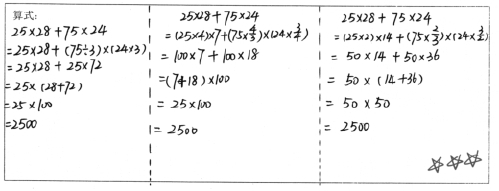 算式:
25×28+75×24
=25×28+(75÷3)×(24×3)
=25×28+25×72
=25×(28+72)
=25×100
=2500
25×28+75×24
=(25×4)×7+(75×4/3)×(24×3/4)
=100×7+100×18
=(7+18)×100
=25×100
=2500
25×28+75×24
=(25×2)×14+(75×2/3)×(24×3/2)
=50×14+50×36
=50×(14+36)
=50×50
=2500